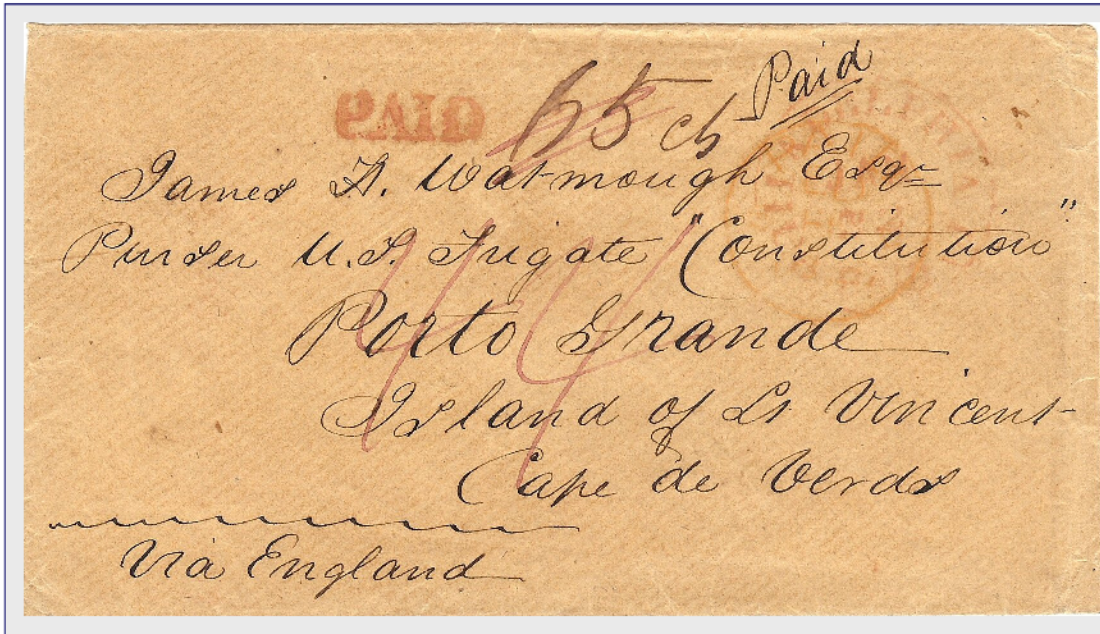 PAID
65 cts Paid
James H. Watmough Esqr
Purser U.S. Frigate "Constitution"
Porto Grande
Island of St Vincent
Cape de Verds
Via England